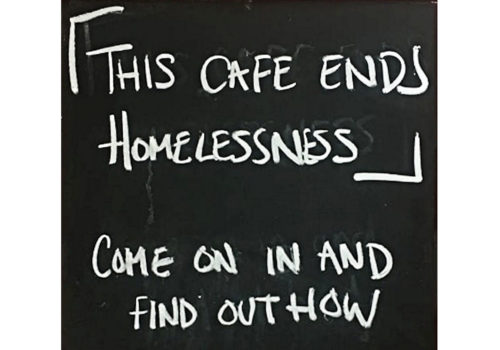 THIS CAFE ENDS
HOMELESSNESS
COME ON IN AND
FIND OUT HOW